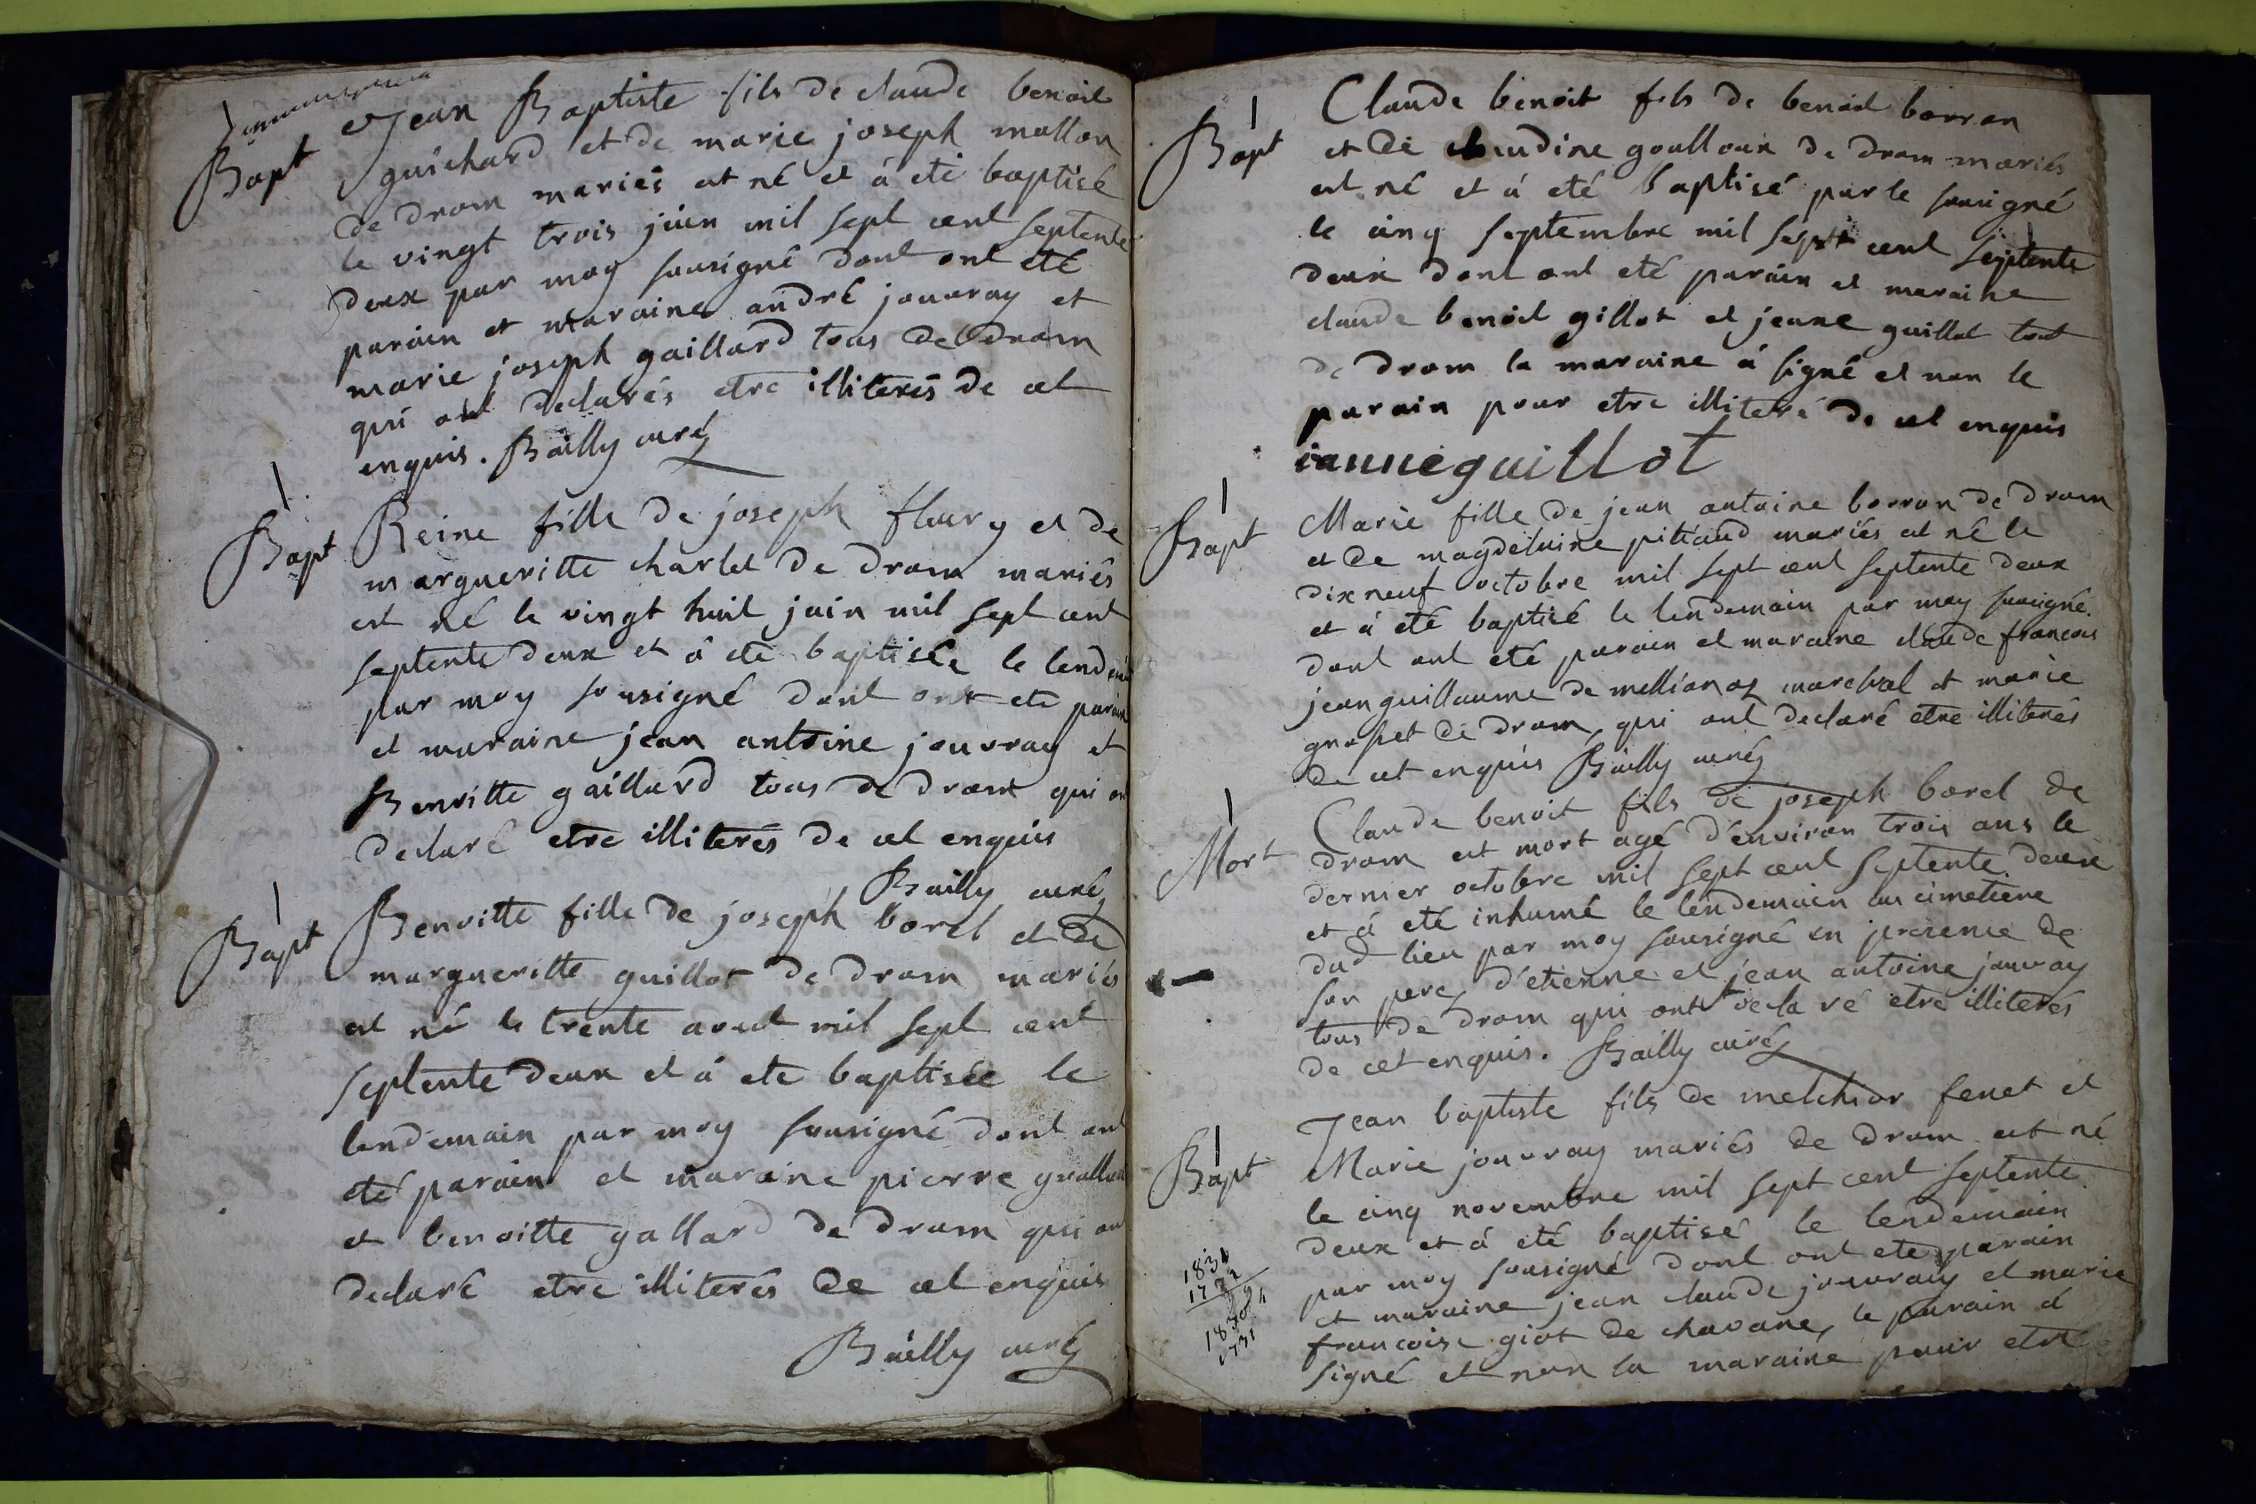 Bapt
Jean Baptiste fils de claude benoit
guichard et de marie joseph mollon
de drom mariés est né et à eté baptisé
le vingt trois juin mil sept cent septente
deux par moy sousigné dont ont eté
parain et maraine andré jouvray et
marie joseph gaillard tous de drom
qui ont declarés etre illiterés de cet
enquis. Bailly curé
Bapt
Reine fille de joseph fleury et de
margueritte charlet de drom mariés
est né le vingt huit juin mil sept cent
septente deux et à eté baptisée le lendem
par moy sousigné dont ont eté parain
et maraine jean antoine jouvray et
Benoitte gaillard tous de drom qui on
declaré etre illiterés de cet enquis
Bailly curé
Bapt
Benoitte fille de joseph borel et de
margueritte guillot de drom mariés
est né le trente aout mil sept cent
septente deux et à eté baptisée le
lendemain par moy sousigné dont ont
eté parain et maraine pierre
et benoitte gallard de drom qui on
declaré etre illiterés de cet enquis
Bailly curé
Bapt
Claude benoit fils de benoit borron
et de claudine goulloux de drom mariés
est né et à eté baptisé par le sousigné
le cinq septembre mil sept cent septente
deux dont ont eté parain et maraine
claude benoit gillot et jeane guillot tout
de drom la maraine à signé et non le
parain pour etre illiteré de cet enquis
ianne guillot
Bapt
Marie fille de jean antoine borron de drom
et de magdelaine pitiaud mariés est né le
dixneuf octobre mil sept cent septente deux
et à eté baptisé le lendemain par moy sousigné
dont ont eté parain et maraine claude francois
jean guillaume de mellionas marechal et marie
de drom qui ont declaré etre illiterés
de cet enquis Bailly curé
Mort
Claude benoit fils de joseph borel de
drom est mort agé d'environ trois ans le
dernier octobre mil sept cent septente deux
et à eté inhumé le lendemain au cimetiere
dud lieu par moy sousigné en presence de
son pere, d'etienne et jean antoine jouvray
tous de drom qui ont declaré etre illiterés
de cet enquis. Bailly curé
Bapt
Jean baptiste fils de melchior fenet et
Marie jouvray mariés de drom est né
le cinq novembre mil sept cent septente
deux et à eté baptisé le lendemain
par moy sousigné dont ont eté parain
et maraine jean claude jouvray et marie
francoise giot de chavane, le parain à
signé et non la maraine pour etre